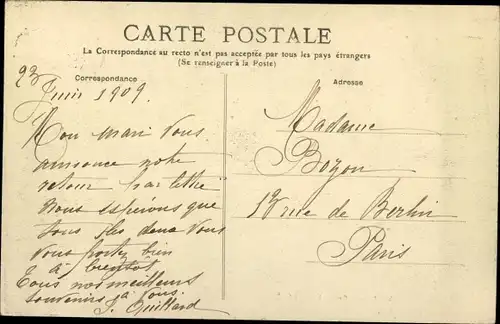 CARTE POSTALE
La Correspondance au recto n'est pas acceptée par tous les pays étrangers
(Se renseigner à la Poste)
Correspondance
Adresse
23
Juin 1909.
Mon mari vous
annonce notre
retour par lettre
Nous espérons que
tous les deux vous
vous portez bien
à bientôt
Tous nos meilleurs
souvenirs à vous.
J. Guillard
Madame
Boyon
12 rue de Berlin
Paris